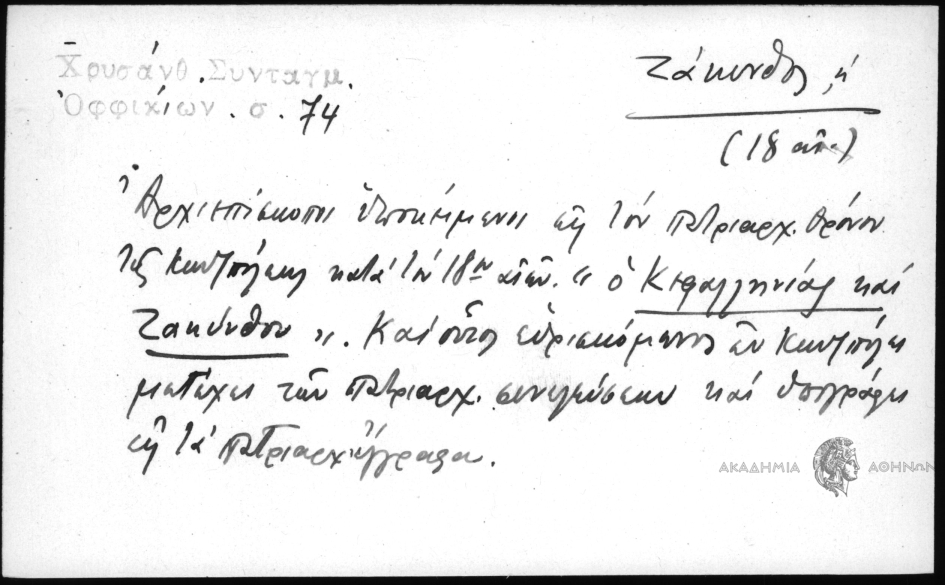 Χρυσάνθ. Συνταγμ.
Ὀφφικίων. σ. 74
Ζάκυνθος, ἡ
(18 αἰ.)
Ἀρχιεπίσκοποι ὑποκείμενοι εἰς τὸν πατριαρχ. θρόνον
τῆς Κων/πόλεως κατὰ τὸν 18ον αἰῶν. "ὁ Κεφαλληνίας καὶ
Ζακύνθου". Καὶ οὗτος εὑρισκόμενος ἐν Κων/πόλει
μετέχει τῶν πατριαρχ. συνελεύσεων καὶ ὑπογράφει
εἰς τὰ πατριαρχ. ἔγγραφα.
ΑΚΑΔΗΜΙΑ ΑΘΗΝΩΝ